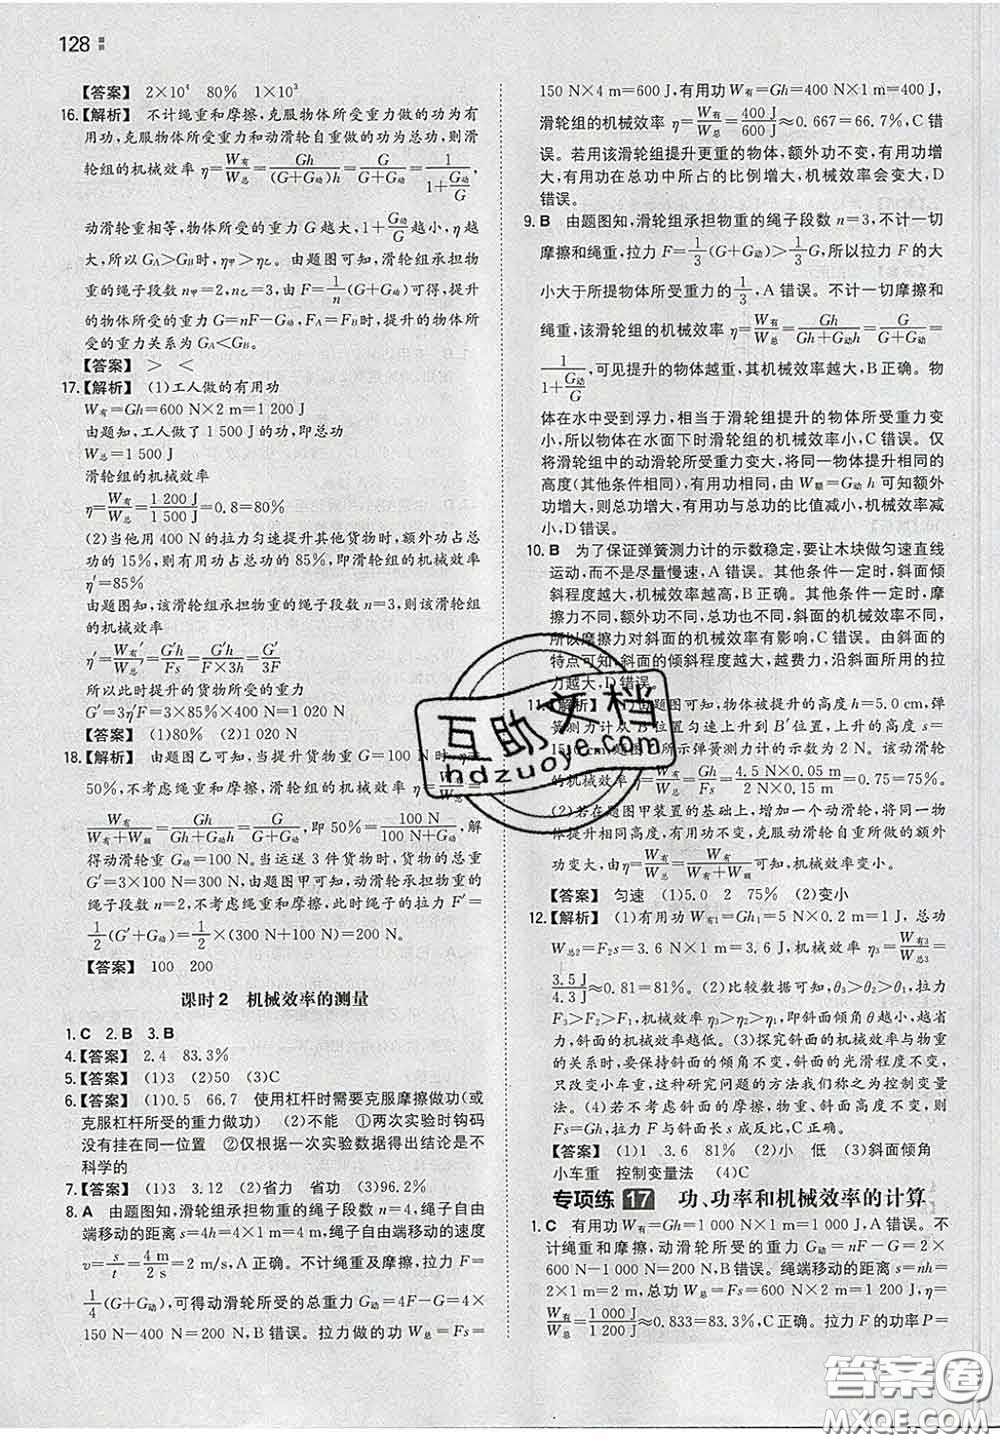 128
【答案】 2×10⁴ 80% 1×10³
16.【解析】 不计绳重和摩擦,克服物体所受重力做的功为有
用功,克服物体所受重力和动滑轮自重做的功为总功,则滑
轮组的机械效率 η=W有/W总=Gh/(G+G动)h=G/(G+G动)=1/(1+G动/G),
动滑轮重相等,物体所受的重力 G 越大,1+G动/G 越小,η 越
大,所以 GA>GB 时,η甲>η乙。由题图可知,滑轮组承担物
重的绳子段数 n甲=2,n乙=3,由 F=1/n(G+G动)可得,提升
的物体所受的重力 G=nF-G动,FA=FB 时,提升的物体所
受的重力关系为 GA<GB。
【答案】 > <
17.【解析】 (1)工人做的有用功
W有=Gh=600 N×2 m=1 200 J
由题知,工人做了 1 500 J的功,即总功
W总=1 500 J
滑轮组的机械效率
η=W有/W总=1 200 J/1 500 J=0.8=80%
(2)当他用 400 N 的拉力匀速提升其他货物时,额外功占
总功的 15%,则有用功占总功的 85%,滑轮组的机械效率
η′=85%
由题图知,该滑轮组承担物重的绳子段数 n=3,则该滑轮组
的机械效率
η′=W有′/W总′=G′h/Fs=G′h/F×3h=G′/3F
所以此时提升的货物所受的重力
G′=3η′F=3×85%×400 N=1 020 N
【答案】 (1)80% (2)1 020 N
18.【解析】 由题图乙可知,当提升货物重 G=100 N 时,η=
50%,不考虑绳重和摩擦,滑轮组的机械效率 η=W有/W总=
W有/W有+W额=Gh/Gh+G动h=G/G+G动,即 50%=100 N/100 N+G动,解
得动滑轮重 G动=100 N。当运送 3 件货物时,货物的总重
G′=3×100 N=300 N,由题图甲可知,动滑轮承担物重的绳
子段数 n=2,不考虑绳重和摩擦,此时绳子的拉力 F′=
1/2(G′+G动)=1/2×(300 N+100 N)=200 N。
【答案】 100 200
课时2 机械效率的测量
1.C 2.B 3.B
4.【答案】 2.4 83.3%
5.【答案】 (1)3 (2)50 (3)C
6.【答案】 (1)0.5 66.7 使用杠杆时需要克服摩擦做功(或
克服杠杆所受的重力做功) (2)不能 ①两次实验时钩码
没有挂在同一位置 ②仅根据一次实验数据得出结论是不
科学的
7.【答案】 (1)3 3.12 (2)省力 省功 (3)96.2%
8. A 由题图知,滑轮组承担物重的绳子段数 n=4,绳子自由
端移动的距离 s=4h=4×1 m=4 m,绳子自由端移动的速度
v=s/t=4 m/2 s=2 m/s,A 正确。不计绳重及摩擦,拉力 F=
1/4(G+G动),可得动滑轮所受的总重力 G动=4F-G=4×
150 N-400 N=200 N,B错误。拉力做的功 W总=Fs=
150 N×4 m=600 J,有用功 W有=Gh=400 N×1 m=400 J,
滑轮组的机械效率 η=W有/W总=400 J/600 J≈0.667=66.7%,C错
误。若用该滑轮组提升更重的物体,额外功不变,有用功增
大,有用功在总功中所占的比例增大,机械效率会变大,D
错误。
9. B 由题图知,滑轮组承担物重的绳子段数 n=3,不计一切
摩擦和绳重,拉力 F=1/3(G+G动)>1/3G,所以拉力 F 的大
小大于所提物体所受重力的 1/3,A 错误。不计一切摩擦和
绳重,该滑轮组的机械效率 η=W有/W总=Gh/Gh+G动h=G/G+G动=
1/(1+G动/G),可见提升的物体越重,其机械效率越大,B正确。物
体在水中受到浮力,相当于滑轮组提升的物体所受重力变
小,所以物体在水面下时滑轮组的机械效率小,C错误。仅
将滑轮组中的动滑轮所受重力变大,将同一物体提升相同的
高度(其他条件相同),提升相同的高度,由 W额=G动h 可知额外
功增大,则总功增大,有用功与总功的比值减小,机械效率减
小,D错误。
10. B 为了保证弹簧测力计的示数稳定,要让木块做匀速直线
运动,而不是尽量慢速,A 错误。其他条件一定时,斜面倾
斜程度越大,机械效率越高,B正确。其他条件一定时,摩
擦力不同、额外功不同,总功也不同,斜面的机械效率不同,
所以摩擦力对斜面的机械效率有影响,C错误。由斜面的
特点可知,斜面的倾斜程度越大,越费力,沿斜面所用的拉
力越大,D错误。
11.【解析】 (1)由题图可知,物体被提升的高度 h=5.0 cm,弹
簧测力计从 B 位置匀速上升到 B′位置,上升的高度 s=
15.0 cm,题图所示弹簧测力计的示数为 2 N。该动滑轮
的机械效率 η=W有/W总=Gh/Fs=4.5 N×0.05 m/2 N×0.15 m=0.75=75%。
(2)若在题图甲装置的基础上,增加一个动滑轮,将同一物
体提升相同高度,有用功不变,克服动滑轮自重所做的额外
功变大,由 η=W有/W总=W有/W有+W额可知,机械效率变小。
【答案】 匀速 (1)5.0 2 75% (2)变小
12.【解析】 (1)有用功 W有1=Gh1=5 N×0.2 m=1 J,总功
W总2=F2s=3.6 N×1 m=3.6 J,机械效率 η3=W有3/W总3=
3.5 J/4.3 J≈81%。(2)比较数据可知,θ3>θ2>θ1,拉力
F3>F2>F1,机械效率 η3>η2>η1,即斜面倾角 θ 越小,越省
力,机械效率越低。(3)探究斜面的机械效率与物重
的关系时,要保持斜面的倾角不变,斜面的光滑程度不变,
只改变小车重,这种研究问题的方法我们称为控制变量
法。(4)若不考虑斜面的摩擦,物重、斜面高度不变,根据
Fs=Gh,拉力 F 与斜面长 s 成反比,C 正确。
【答案】 (1)1 3.6 81% (2)小 低 (3)斜面倾角
小车重 控制变量法 (4)C
专项练 17 功、功率和机械效率的计算
1. C 有用功 W有=Gh=1 000 N×1 m=1 000 J,A错误。不
计绳重和摩擦,动滑轮所受的重力 G动=nF-G=2×
600 N-1 000 N=200 N,B错误。绳端移动的距离 s=nh=
2×1 m=2 m,总功 W总=Fs=600 N×2 m=1 200 J,η=
W有/W总=1 000 J/1 200 J≈0.833=83.3%,C正确。拉力 F 的功率 P=
互助文档
hdzuoye.com
答案圈
MXQE.COM